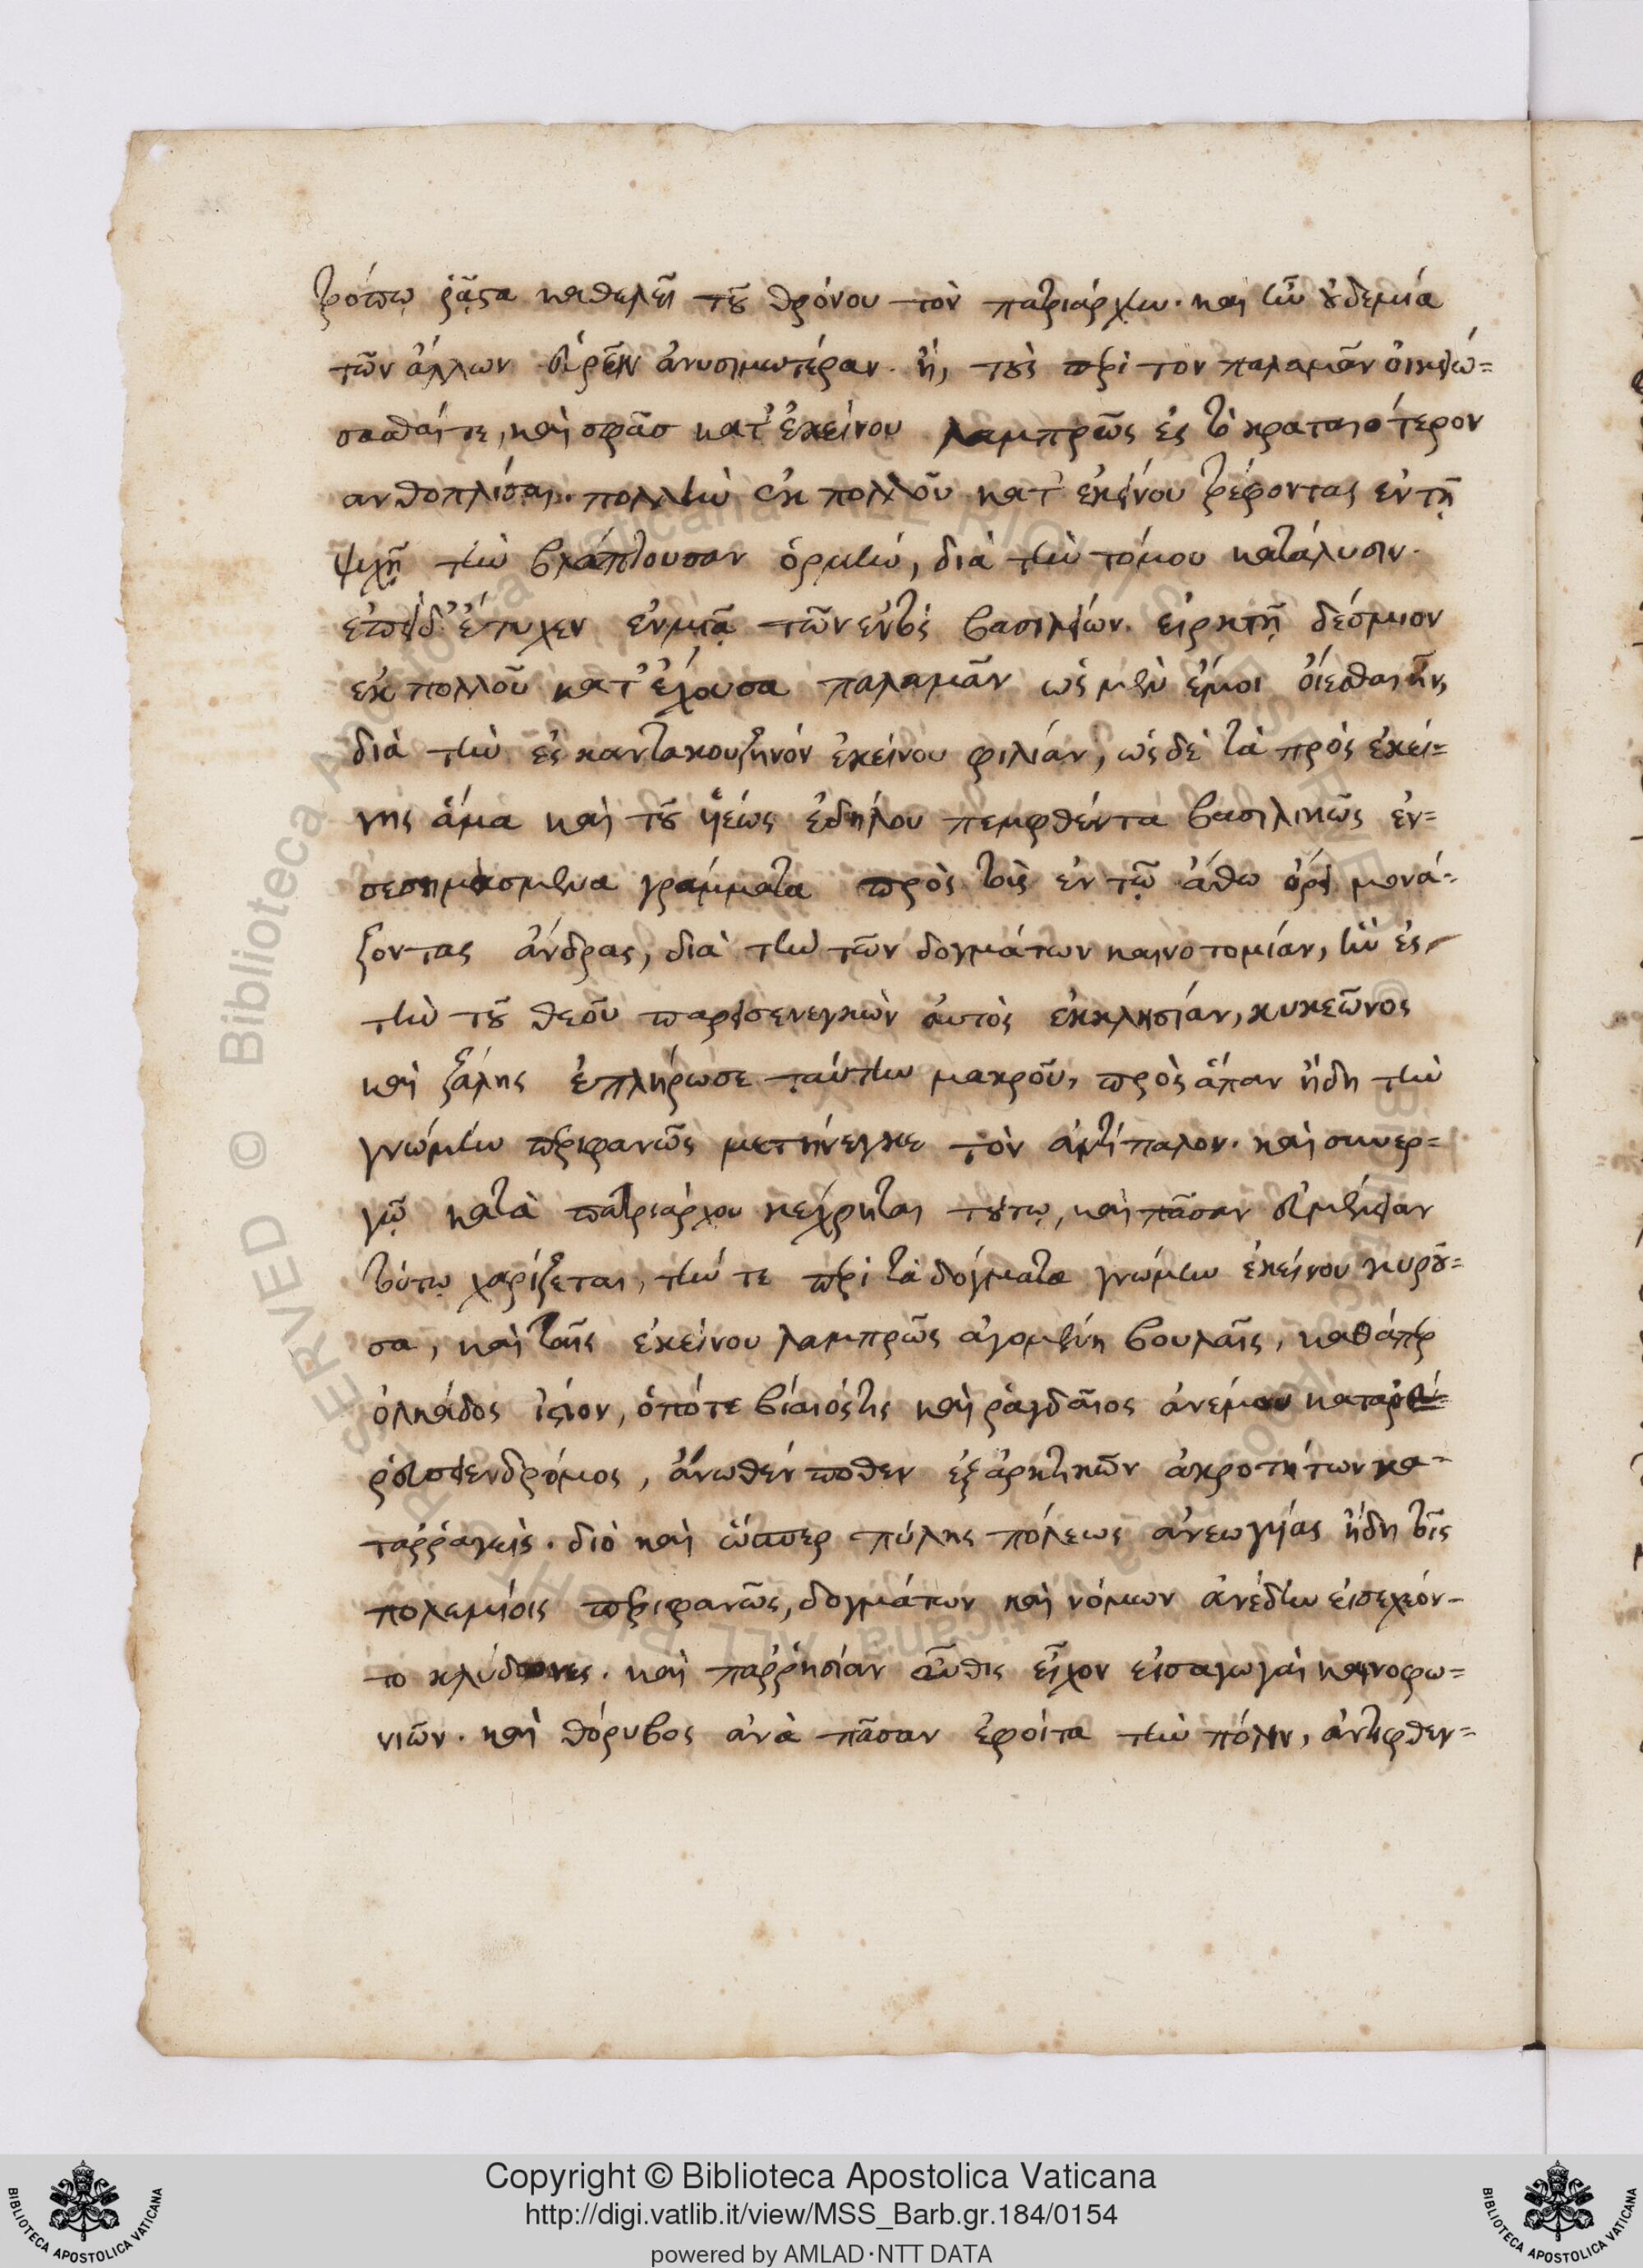 τρόπῳ ῥᾷστα καθελεῖν τοῦ θρόνου τὸν πατριάρχην. καὶ ἦν οὐδεμία
τῶν ἄλλων εὑρεῖν ἀνυσιμωτέραν. ἢ, τοὺς περὶ τὸν παλαμᾶν οἰκειώ=
σασθαί τε, καὶ σφᾶσ κατ' ἐκείνου λαμπρῶς ἐς τὸ κραταιότερον
ανθοπλίσαι. πολλὴν ἐκ πολλοῦ κατ' ἐκείνου τρέφοντας ἐν τῇ
ψυχῇ τὴν βλάπτουσαν ὁρμὴν, διὰ τὴν τόμου κατάλυσιν.
ἐπεὶ δ' ἔτυχεν ἐν μιᾷ τῶν ἐν τοῖς βασιλείων εἱρκτῇ δέσμιον
ἐκ πολλοῦ κατ' ἔχουσα παλαμᾶν ὡς μὲν ἐμοὶ οἴεσθαι ἦν,
διὰ τὴν ἐς καντακουζηνόν ἐκείνου φιλίαν, ὡς δὲ τὰ πρὸς ἐκεί=
νης ἅμα καὶ τοῦ υἱέως ἐδήλου πεμφθέντα βασιλικῶς ἐν=
σεσημασμένα γράμματα πρὸς τοὺς ἐν τῷ ἄθω ὄρει μονά=
ζοντας ἄνδρας, διὰ τὴν τῶν δογμάτων καινοτομίαν, ἣν ἐς
τὴν τοῦ θεοῦ παρεισενεγκὼν αὐτὸς ἐκκλησίαν, κυκεῶνος
καὶ ζάλης ἐπλήρωσε ταύτην μακροῦ, πρὸς ἅπαν ἤδη τὴν
γνώμην περιφανῶς μετήνεγκε τὸν ἀντίπαλον. καὶ συνερ=
γῷ κατὰ πατριάρχου κέχρηται τούτῳ, καὶ πᾶσαν εὐμένειαν
τούτῳ χαρίζεται, τήν τε περὶ τὰ δόγματα γνώμην ἐκείνου κυροῦ=
σα, καὶ ταῖς ἐκείνου λαμπρῶς ἀγομένη βουλαῖς, καθάπερ
ὁλκάδος ἱστίον, ὁπότε βίαιός τις καὶ ῥαγδαῖος ἀνέμου
ἄνωθέν ποθεν ἐξ ἀρκτικῶν ἀκροτήτων κα=
ταῤῥαγεὶς. διὸ καὶ ὥσπερ πύλης πόλεως ἀνεωγυίας ἤδη τοῖς
πολεμίοις περιφανῶς, δογμάτων καὶ νόμων ἀνέδην εἰσεχέον=
το κλύδωνες. καὶ παῤῥησίαν αὖθις εἶχον εἰσαγωγαὶ καινοφω=
νιῶν. καὶ θόρυβος ἀνὰ πᾶσαν ἐφοίτα τὴν πόλιν, ἀντιφθεγ=
Copyright © Biblioteca Apostolica Vaticana
http://digi.vatlib.it/view/MSS_Barb.gr.184/0154
powered by AMLAD·NTT DATA